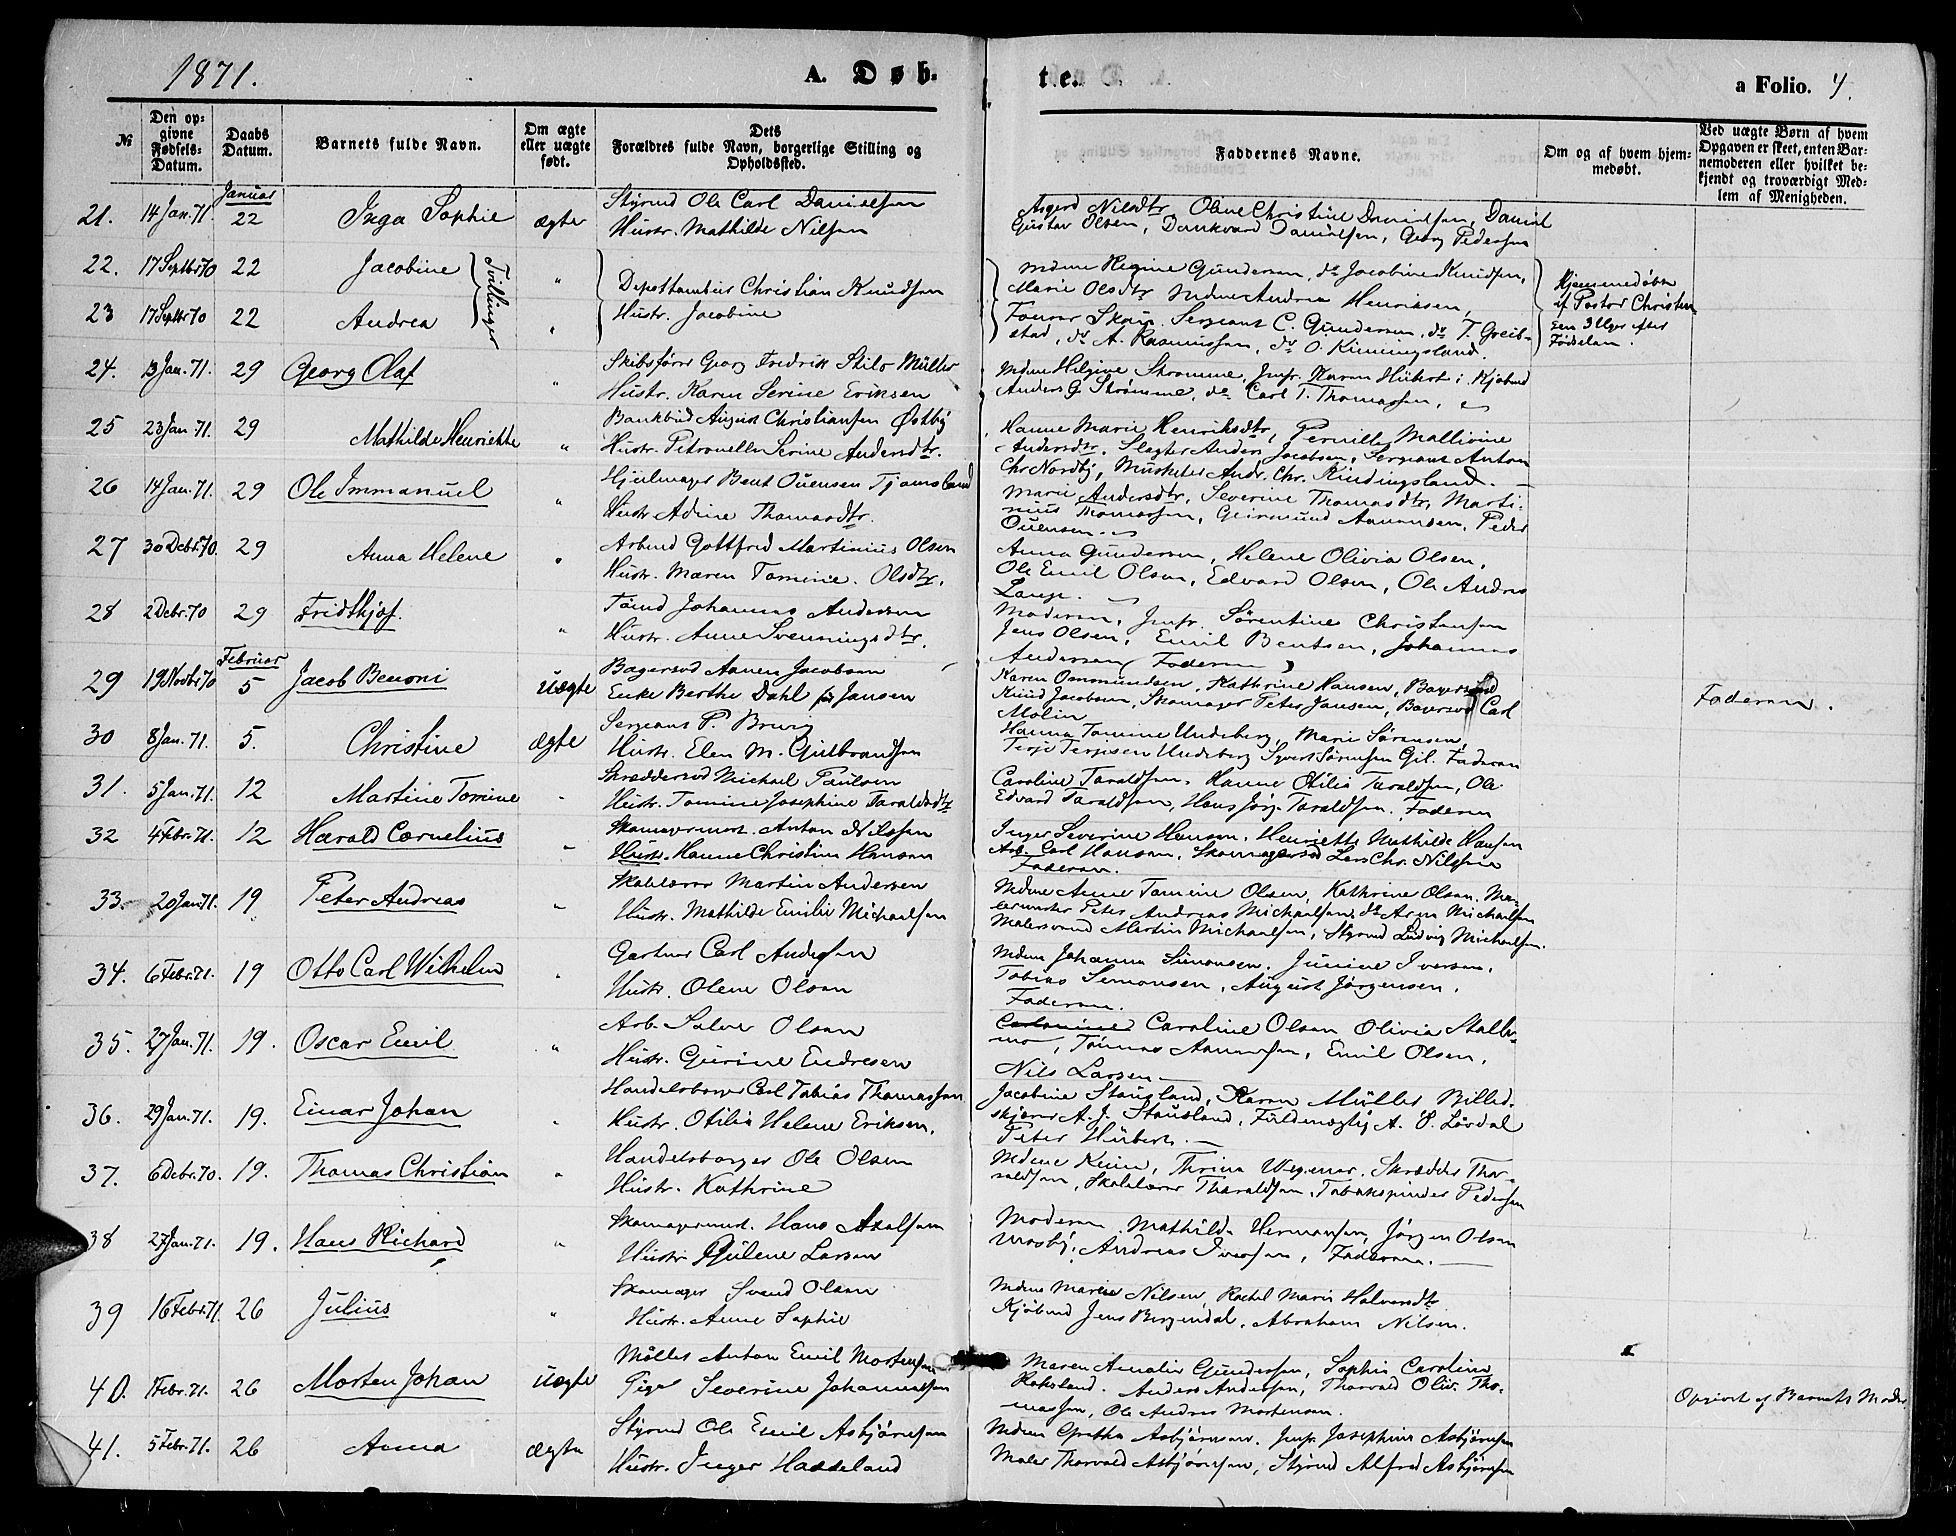 1871.
A. Døb-
te.
a Folio. 4.
№
Den op-
givne
Fødsels-
Datum.
Daabs
Datum.
Barnets fulde Navn.
Om ægte
eller uægte
født.
Dets
Forældres fulde Navn, borgerlige Stilling og
Opholdssted.
Faddernes Navne.
Om og af hvem hjem-
medøbt.
Ved uægte Børn af hvem
Opgaven er skeet, enten Bar-
nemoderen eller hvilket be-
kjendt og troværdigt Med-
lem af Menigheden.
Januar
21. 14 Jan. 71. 22 Inga Sophie ægte Styrmd Ole Carl Danielsen
Hustr. Mathilde Nilsen
Asgerd Nilsdtr Olene Christine Danielsen, Daniel
Gustav Olsen, Dankvard Danielsen, Georg Pedersen
22. 17 Septbr 70 22 Jacobine Tvillinger "
Depottambur Christian Knudsen
Mdme Regine Gundersen, do Jacobine Knudsen,
Marie Olsdtr Mdme Andrea Henriksen,
Hjemmedøbte
af Pastor Christen
sen 3 Uger efter
Fødselen.
23 17 Septbr 70 22 Andrea "
Hustr. Jacobine
Fourer Skou, Sergeant C. Gundersen, do T. Greib-
stad, do A. Rasmussen, do O. Kinningsland.
24. 13 Jan. 71. 29 Georg Olaf " Skibsfører Georg Fredrik Stilo Müller
Hustr. Karen Serine Eriksen
Mdme Helgine Strømme, Jmfr. Karen Hübert, Kjøbmd
Anders G. Strømme, do Carl T. Thomassen,
25 23 Jan. 71. 29 Mathilde Henriette " Bankbud August Christiansen Østby
Hustr. Petronelle Serine Andersdtr.
Hanne Marie Henriksdtr, Pernille Mallivine
Andersdtr, Slagter Anders Jacobsen, Sergeant Anton
Chr Nordby, Musketer Andr. Chr. Kindingsland.
26 14 Jan. 71. 29 Ole Immanuel " Hjulmager Bent Ouensen Tjomsland
Hustr Adine Thomasdtr.
Marie Andersdtr, Severine Thomasdtr, Marti-
nius Thomassen, Geirmund Aanensen, Peder
Ouensen.
27 30 Debr. 70. 29 Anna Helene " Arbmd Gottfred Martinius Olsen
Hustr. Maren Tomine Olsdtr.
Anna Gundersen, Helene Olivia Olsen,
Ole Emil Olsen, Edvard Olsen, Ole Andreas
Lange.
28 2 Debr. 70 29 Fridthjof. " Tømd Johannes Andersen
Hustr. Anne Svenningsdtr.
Moderen, Jmfr. Sørentine Christensen
Jens Olsen, Emil Bentsen, Johannes
Andersen (Faderen)
Februar
29 19 Novbr 70 5 Jacob Benoni uægte Bagersvd Aanen Jacobsen
Enke Berthe Dahl f. Jansen
Karen Ommundsen, Kathrine Hansen, Bagersvd
Knud Jacobsen, Skomager Peter Jansen, Bagersvd Carl
Molin
Faderen.
30 8 Jan. 71. 5. Christine ægte Sergeant P. Bruvig
Hustr. Elen M. Gulbrandsen
Hanna Tomine Undeberg, Marie Sørensen,
Terje Terjesen Undeberg Syvert Sørensen Gil. Faderen
31. 5 Jan. 71. 12 Martine Tomine " Skræddersvd Michael Paulsen
Hustr. Tomine Josephine Taraldsdtr
Caroline Taraldsen, Hanne Otilia Taraldsen, Ole
Edvard Taraldsen, Hans Jørg. Taraldsen, Faderen
32 4 Febr. 71. 12 Harald Cornelius " Skomagermst. Anton Nilssen
Hustr. Hanne Christine Hansen
Inger Severine Hansen, Henriette Mathilde Hansen
Arb. Carl Hansen, Skomagersvd Lars Chr. Nilssen
Faderen.
33. 20 Jan 71. 19 Peter Andreas " Skolelærer Martin Andersen
Hustr. Mathilde Emilie Michaelsen
Mdme Anne Tomine Olsen, Kathrine Olsen, Ma-
lermester Peter Andreas Michaelsen, do Aren Michaelsen
Malersvend Martin Michaelsen, Styrmd Ludvig Michaelsen.
34. 6 Febr. 71. 19 Otto Carl Wilhelm " Gartner Carl Andersen
Hustr. Olene Olsen
Mdme Johanna Simonsen, Junine Iversen,
Tobias Simonsen, August Jørgensen,
Faderen.
35. 27 Jan. 71. 19. Oscar Emil " Arb. Salve Olsen
Hustr. Gurine Endresen
Caroline Olsen Olivia Stalle-
mo, Tønnes Aanensen, Emil Olsen,
Nils Larsen
36. 29 Jan. 71. 19. Einar Johan " Handelsborger Carl Tobias Thomassen
Hustr. Otilia Helene Eriksen,
Jacobine Stousland, Karen Müller, Billed-
skjærer A. J. Stousland, Fuldmægtig A. O. Lørdal
Peter Hübert.
37. 6 Debr. 70. 19. Thomas Christian " Handelsborger Ole Olsen
Hustr. Kathrine
Mdme Keim, Thrine Wegener, Skrædder Tha-
raldsen, Skolelærer Tharaldsen, Tobakspinder Pedersen
38 27 Jan. 71. 19. Hans Richard " Skomagermst. Hans Axelsen
Hustr Gulene Larsen
Moderen, Mathilde Hermansen, Jørgen Olsen
Mosby, Andreas Iversen, Faderen.
39 16 Febr. 71. 26 Julius " Skomager Svend Olsen
Hustr. Anne Sophie
Mdme Marie Nilsen, Rachel Marie Halvorsdtr
Kjøbmd Jens Bergendal, Abraham Nilsen.
40. 1 Febr. 71. 26 Morten Johan uægte Møller Anton Emil Mortensen
Pige Severine Johannessen
Maren Amalie Gundersen, Sophie Caroline
Roksland, Anders Andersen, Thorvald Oliv. Tho-
massen, Ole Andreas Mortensen.
Opgivet af Barnets Moder
41. 5 Febr. 71. 26 Anna ægte Styrmd Ole Emil Asbjørnsen
Hustr. Inger Hasseland
Mdme Grethe Asbjørnsen, Jmfr. Josephine Asbjørnsen
Maler Thorvald Asbjørnsen, Styrmd Alfred Asbjørnsen